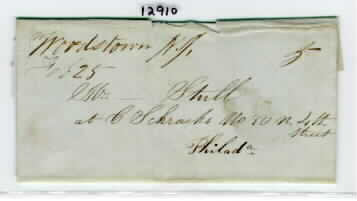 12910
Woodstown N.J. 5
Feb 25
Mr. Stull
at C Schracks No 80 N. 4th
street
Philada.